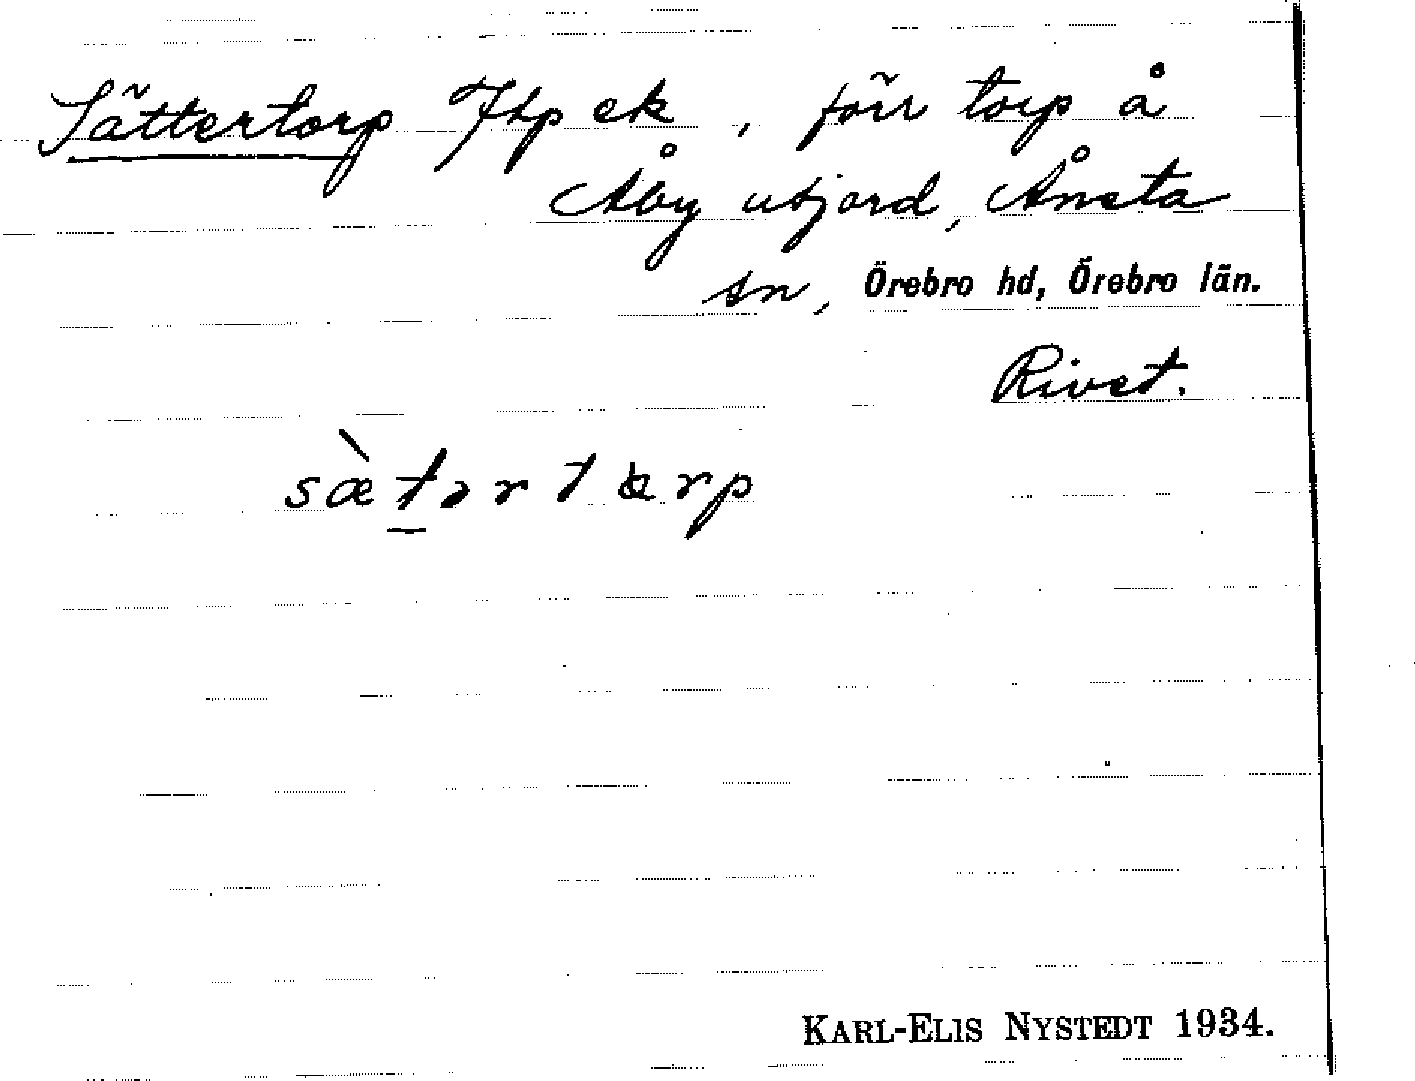 Sättertorp Jtp ek, förr torp å
Åby utjord, Ånsta
sn, Örebro hd, Örebro län.
Rivet.
sæ̀t̲ərtɵrp
KARL-ELIS NYSTEDT 1934.